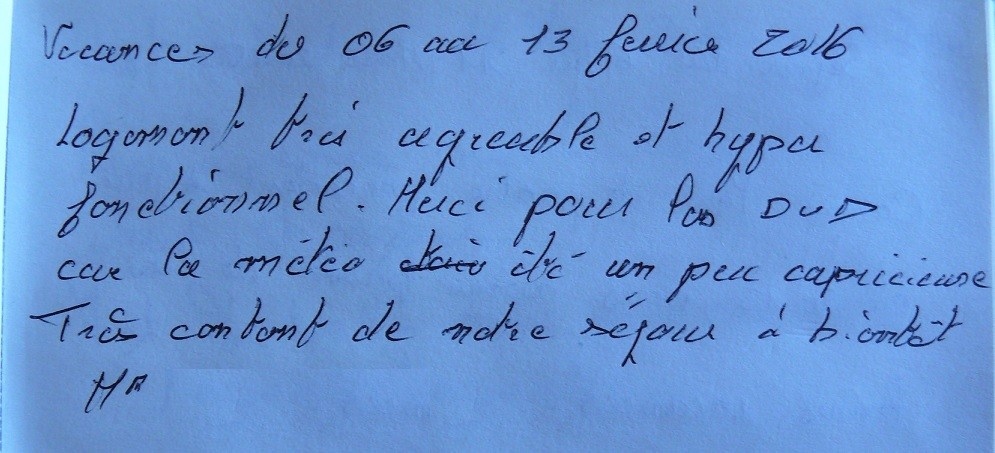 Vacances du 06 au 13 fevrier 2016
Logement très agreable et hyper
fonctionnel. Merci pour les DVD
car la météo été un peu capricieuse
Très content de notre séjour à bientôt